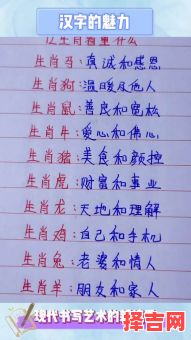 汉字的魅力
生肖马：真诚和感恩
生肖狗：温暖及他人
生肖鼠：善良和宽松
生肖牛：爱心和佛心
生肖猪：美食和颜控
生肖虎：财富和事业
生肖龙：天地和理解
生肖鸡：自己和手机
生肖兔：老婆和情人
生肖羊：朋友和家人
现代书写艺术的
择吉网